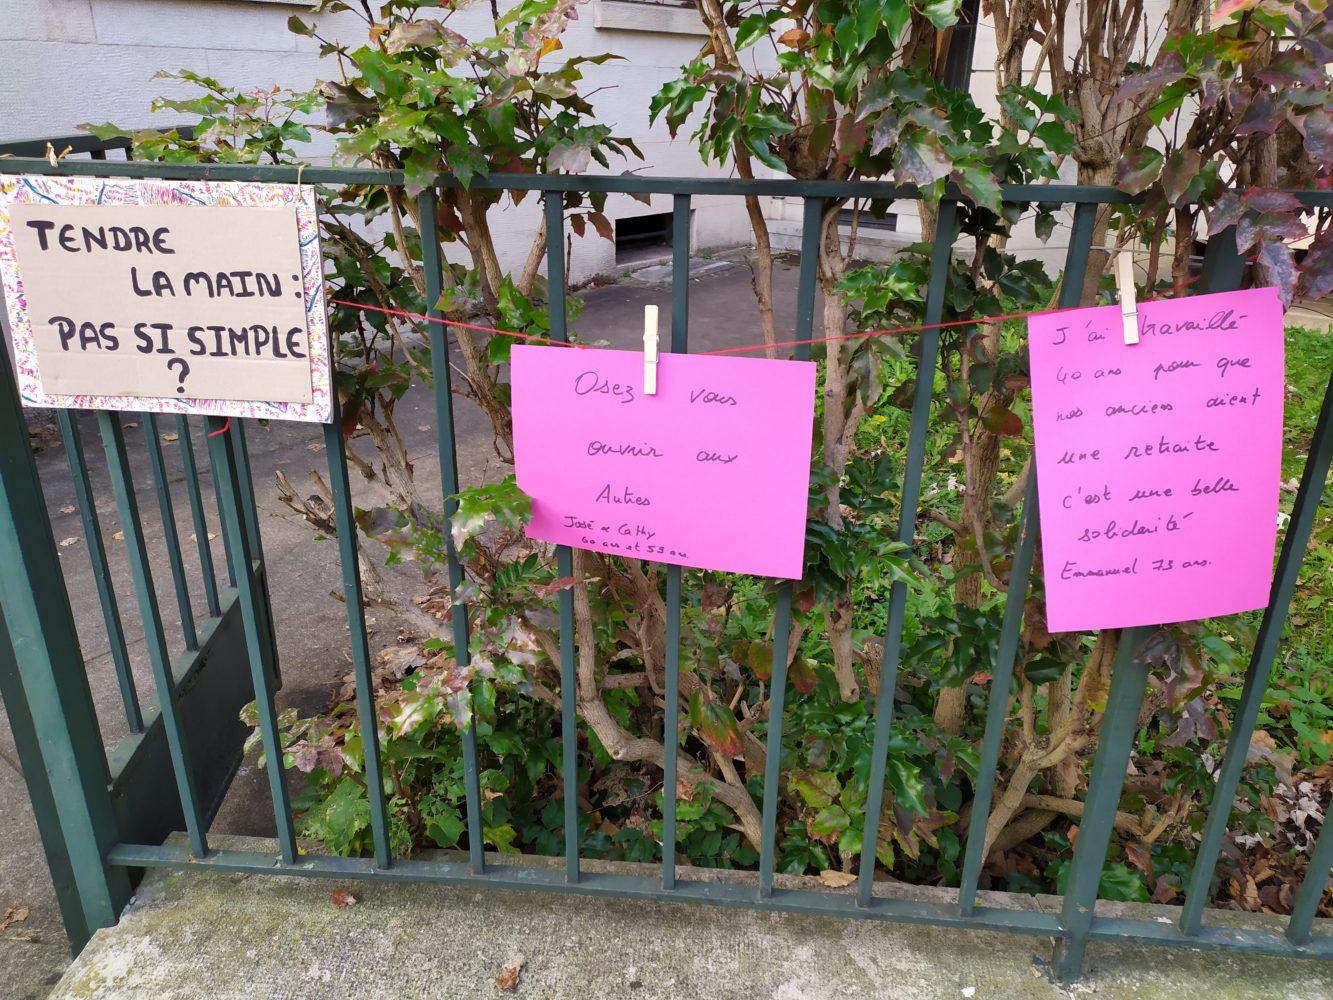 TENDRE
LA MAIN :
PAS SI SIMPLE
?
Osez vous
ouvrir aux
Autres
José & Cathy
60 ans et 59 ans
J'ai travaillé
40 ans pour que
nos anciens aient
une retraite
c'est une belle
solidarité
Emmanuel 73 ans.